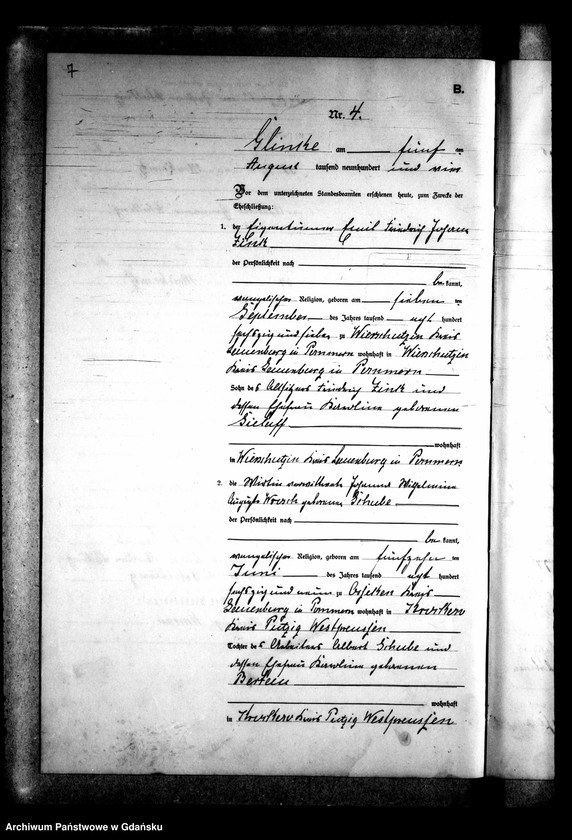 7
B.
Nr. 4.
Glinke am fünf ten
August tausend neunhundert und vier
Vor dem unterzeichneten Standesbeamten erschienen heute, zum Zwecke der
Eheschließung:
1. der Eigentümer Emil Friedrich Johann
Zink
der Persönlichkeit nach
be kannt,
evangelischer Religion, geboren am sieben ten
September des Jahres tausend acht hundert
sechszig und sieben zu Wierschutzin Kreis
Lauenburg in Pommern wohnhaft in Wierschutzin
Kreis Lauenburg in Pommern
Sohn des Altsitzers Friedrich Zink und
dessen Ehefrau Karoline geborenen
wohnhaft
in Wierschutzin Kreis Lauenburg in Pommern
2. die Wirtin verwittwete Johanna Wilhelmine
Auguste geborene Schube
der Persönlichkeit nach
be kannt,
evangelischer Religion, geboren am fünfzehn ten
Juni des Jahres tausend acht hundert
sechszig und neun zu Ossecken Kreis
Lauenburg in Pommern wohnhaft in
Kreis Putzig Westpreussen
Tochter des Arbeiters Albert Schube und
dessen Ehefrau Karoline geborenen
wohnhaft
in Kreis Putzig Westpreussen
Archiwum Państwowe w Gdańsku